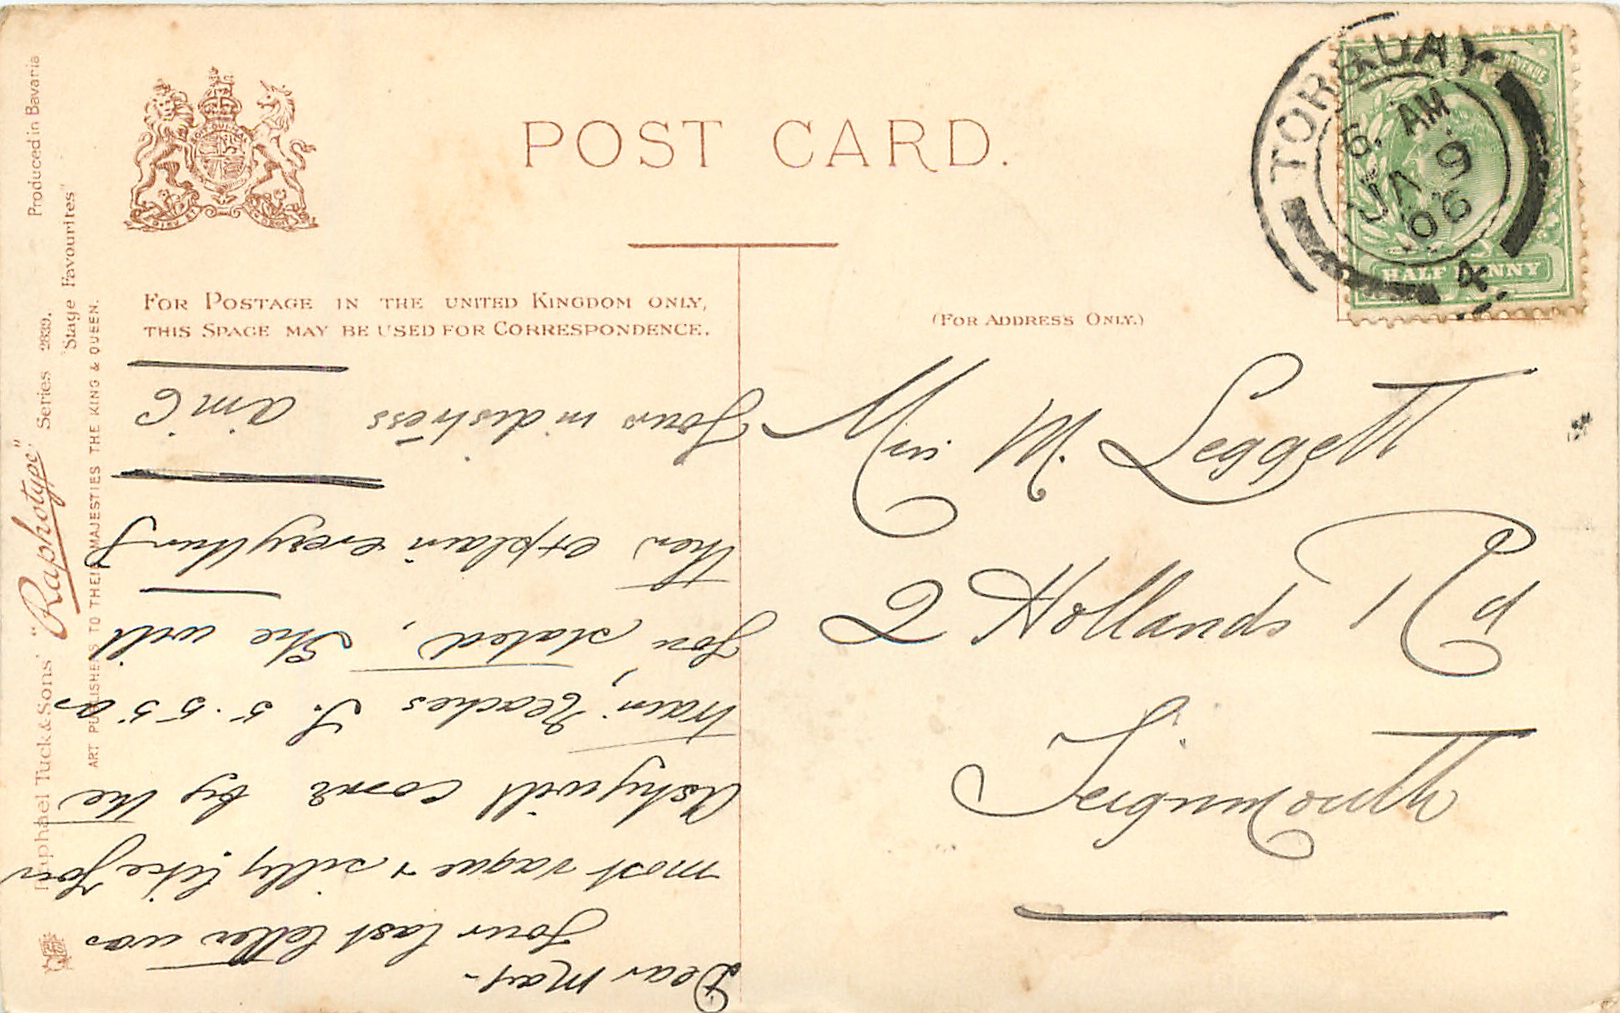 POST CARD.
FOR POSTAGE IN THE UNITED KINGDOM ONLY,
THIS SPACE MAY BE USED FOR CORRESPONDENCE.
(FOR ADDRESS ONLY.)
TORQUAY
6. AM
JA 9
06
4
REVENUE
HALF PENNY
Miss M. Leggett
2 Hollands Rd
Teignmouth
Dear May-
Your last letter was
most vague & silly like You
Ashy will come by the
train, Reaches T. 5.55 as
You stated, She will
then explain everything
Yours in distress
A.M.C
Raphael Tuck & Sons' "Raphotype" Series 2839.
"Stage Favourites"
Produced in Bavaria
ART PUBLISHERS TO THEIR MAJESTIES THE KING & QUEEN.